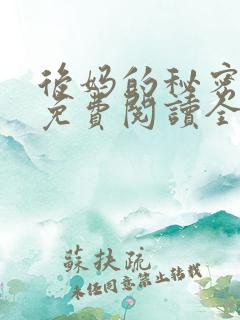 後妈的秘密
免費閱讀全
蘇扶疏
未任同意禁止转载